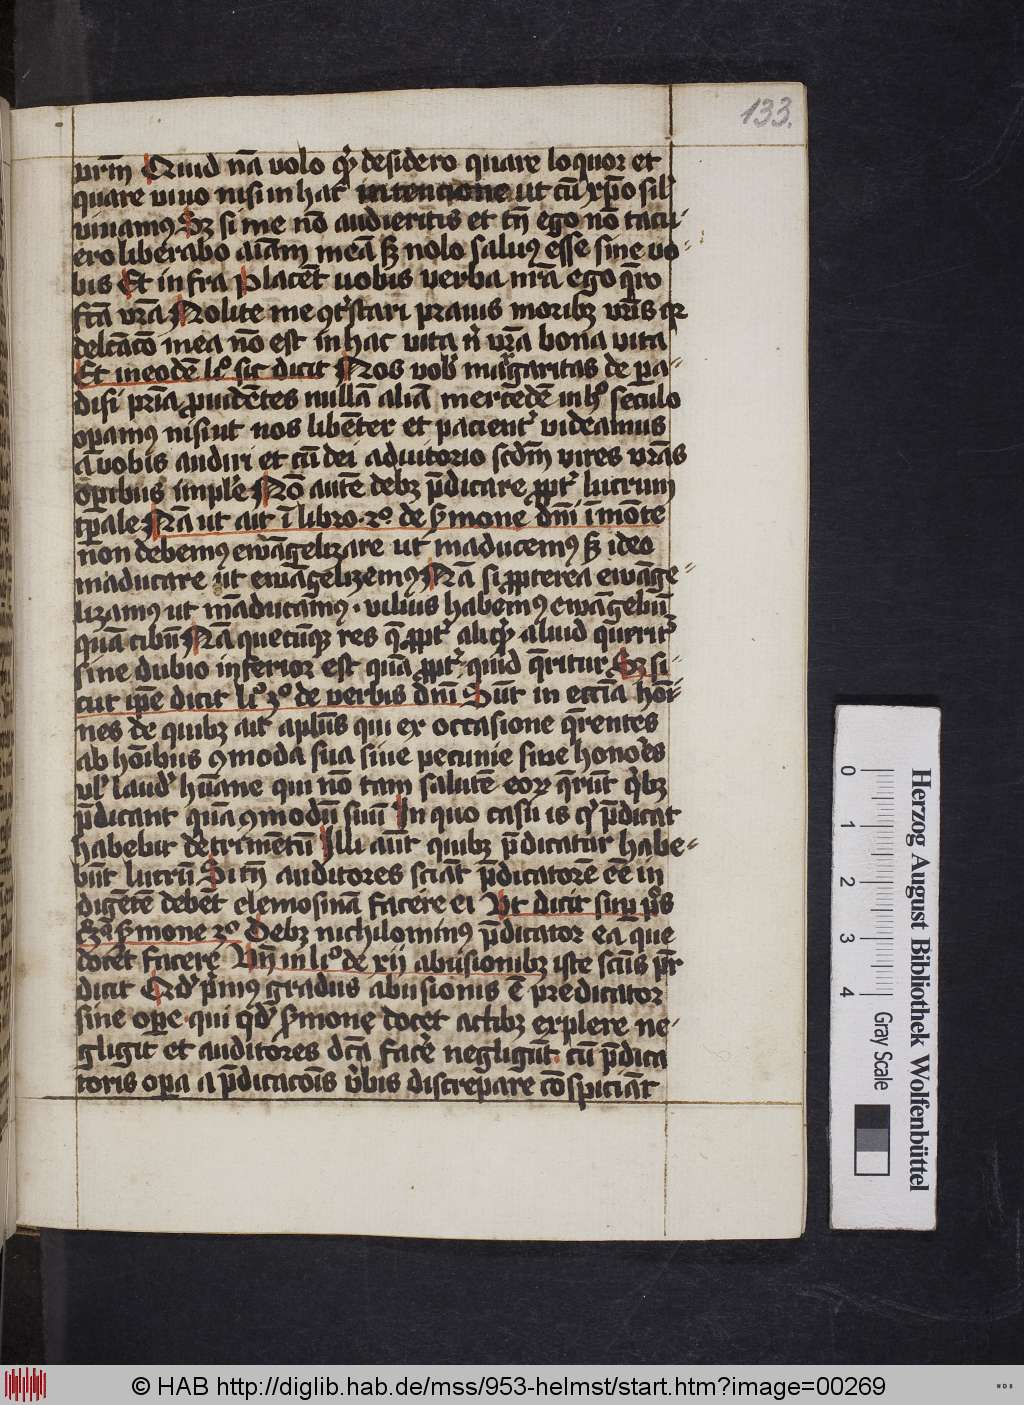 133.
vrm̄ Quid nā volo qͥ desidero quare loquor et
quare vivo nisi in hac intencione ut cū xp̄o sil̄
vivamꝰ Sꝫ si me nō audieritis et tn̄ ego nō tacu⸗
ero liberabo aīam meā sꝫ nolo saluꝰ esse sine vo⸗
bis Et infra Placēt vobis verba nr̄a ego q̄ro
fc̄ta vr̄a Nolite me ꝯtͥstari pravis moribꝫ vr̄is qr
delc̄tac̄o mea nō est in hac vita nͥ vr̄a bona vita
Et in eodē liͦ sic dicit Nos vob̄ margaritas de pa⸗
disi pr̄ia ꝓvidētes nullā aliā mercedē in hͦ seculo
optamꝰ nisi ut nos libēter et pacient̄ videamus
a vobis audiri et cū dei adiutorio scd̄m vires vr̄as
opībus implē Nō autē debꝫ p̄dicare ꝓpt̄ lucrum
tꝑale Nā ut ait ī libro ·2º· de ẜmone dn̄i ī mōte
non debemꝰ ewāgelizare ut māducemꝰ sꝫ ideo
māducare ut ewāgelizemꝰ Nā si ꝓpterea ewāge⸗
lizamꝰ ut māducamꝰ · vilius habemꝰ ewāgeliū
quā cibū Nā quecūqꝫ res q̄ ꝓpt̄ aliqͥ aliud querrit̄
sine dubio inferior est quā ꝓpt̄ quid q̄ritur Sꝫ si⸗
cut ip̄e dicit liͦ 3º de verbis dn̄i Sūt in ecc̄ia hōi⸗
nes de quibꝫ ait apl̄us qui ex occasione q̄rentes
ab hōibus ꝯmoda sua sive pecunie sive honoris
vl̄ laud̄ hūane qui nō tam salutē eoꝝ q̄rūt qͥbꝫ
p̄dicant quā ꝯmodū suū In quo casu is qͥ p̄dicat
habebit detrimētū Illi aūt quibꝫ p̄dicatur habe⸗
būt lucrū Si tn̄ auditores sciāt p̄dicatorē eē in
digētē debēt elemosinā facere ei Ut dicit
ẜmone 2º Debꝫ nichilominꝰ p̄dicator ea que
docet facere Vn̄ in liͦ de xij abusionibꝫ iste scūs pr̄
dicit Qd̄ p̄mꝰ gradus abusionis ē predicator
sine opere qui qd̄ ẜmone docet actibꝫ explere ne⸗
gligit et auditores dc̄a facē negligūt cū p̄dica
toris opa a p̄dicacōis v̄bis discrepare cōspiciāt
0 1 2 3 4 Gray Scale
Herzog August Bibliothek Wolfenbüttel
© HAB http://diglib.hab.de/mss/953-helmst/start.htm?image=00269